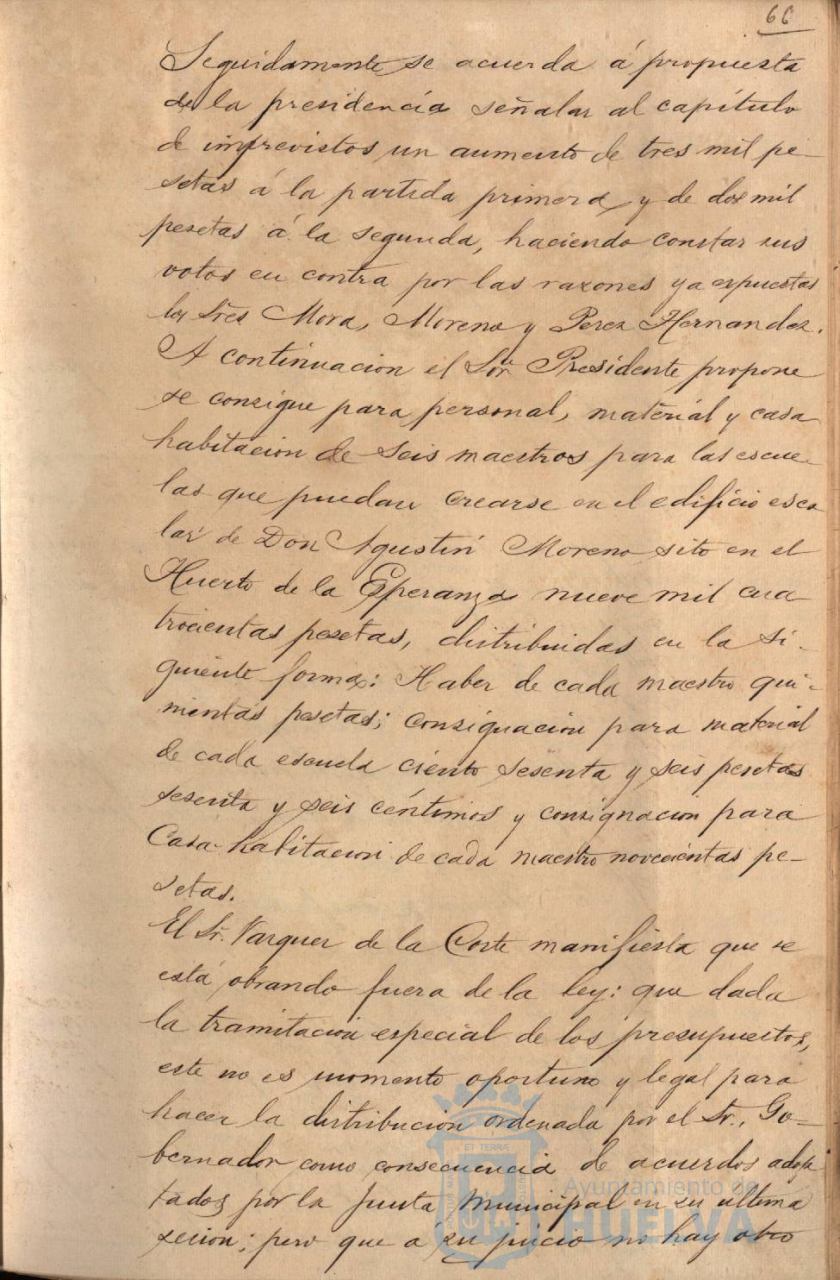 66
Seguidamente se acuerda á propuesta
de la presidencia señalar al capítulo
de imprevistos un aumento de tres mil pe-
setas á la partida primera y de dos mil
pesetas á la segunda, haciendo constar sus
votos en contra por las razones ya espuestas
los Sres Mora, Moreno y Perez Hernandez.
A continuacion el Sor Presidente propone
se consigne para personal, material y casa
habitacion de seis maestros para las escue-
las que puedan crearse en el edificio esco
lar de Don Agustin Moreno sito en el
Huerto de la Esperanza nueve mil cua
trocientas pesetas, distribuidas en la si-
guiente forma: Haber de cada maestro qui-
nientas pesetas; consignacion para material
de cada escuela ciento sesenta y seis pesetas
sesenta y seis céntimos y consignacion para
Casa-habitacion de cada maestro novecientas pe-
setas.
El Sr. Vazquez de la Corte manifiesta que se
está obrando fuera de la ley: que dada
la tramitacion especial de los presupuestos,
este no es momento oportuno y legal para
hacer la distribucion ordenada por el Sr. Go-
bernador como consecuencia de acuerdos adop
tados por la Junta Municipal en su ultima
sesion; pero que á su juicio no hay otro
ET TERRA
Ayuntamiento de
HUELVA